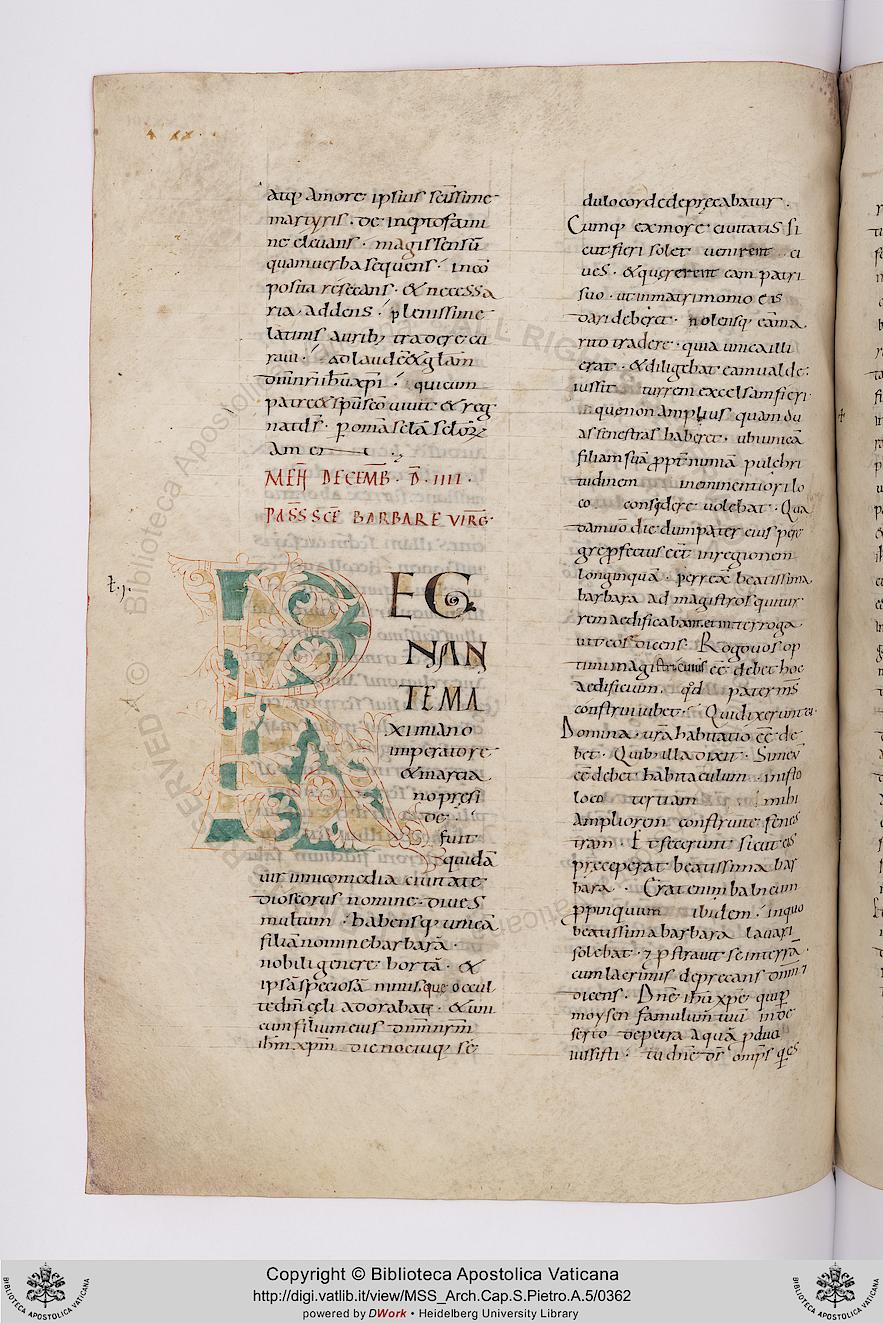 atq; amore ipsius scīssime
martyris · de inepto sami
ne elevans · magis sensū
quam verba sequens · incō
posita resecans · & necessa
ria addens · plenissime
latinis aurib; tradere cu
ravi · ad laudē & glām
dn̄i nr̄i ih̄u xp̄i · qui cum
patre & sp̄u scō vivit & reg
nat
am en
MEN̄ DECEMB̄ · D̄ · IIII ·
PASS̄ SCĒ BARBARE VIRḠ ·
R EG
NAN
TE MA
ximiano
imperatore
& marcia
no presi
de ·
fuit
quidā
vir in nicomedia civitate
dioscorus nomine · dives
multum · habensq; unicā
filiā nomine barbarā ·
nobili genere hortā · &
ipsā speciosā nimis que occul
te dm̄ celi adorabat · & uni
cum filium eius dn̄m nr̄m
ih̄m xp̄m die noctuq; sē
dulo corde deprecabatur ·
Cumq; ex more civitatis si
cut fieri solet venirent ci
ves · & quererent eam patri
suo · ut in matrimonio eis
dari deberet · nolensq; eā ma
rito tradere · quia unica illi
erat · & diligebat eam valde ·
iussit turrem excelsam fieri
que non amplius quam du
as fenestras haberet · ubi unicā
filiam suā ꝓpt̄ nimiā pulchri
tudinem in eminentiori lo
co considere volebat · Qua
dam v̄o die dum pater eius pere
gre ꝓfectus eēt in regionem
longinquā · perrex̄ beatissima
barbara ad magistros qui tur
rem aedificabant · et interroga
vit eos dicens · Rogo vos op
timi magistri cuius eē debet hoc
aedificium · qd̄ pater ms̄
construi iubet · Qui dixerunt ei
Domina · vr̄a habitatio eē de
bet · Quib; illa dixit · Si mea
eē debet habitaculum · in isto
loco tertiam mihi
ampliorem construite fenes
tram · Et fecerunt sicut eis
preceperat beatissima bar
bara · Erat enim balneum
ꝓpinquum ibidem · in quo
beatissima barbara lavari
solebat · ⁊ ꝓstravit se in terrā
cum lacrimis deprecans
dicens · Dn̄e ih̄u xp̄e qui ꝑ
moysen famulum tuū in de
serto de petra aquā ꝓduci
iussisti · tu dn̄e ds̄ omp̄s
Copyright © Biblioteca Apostolica Vaticana
http://digi.vatlib.it/view/MSS_Arch.Cap.S.Pietro.A.5/0362
powered by DWork • Heidelberg University Library